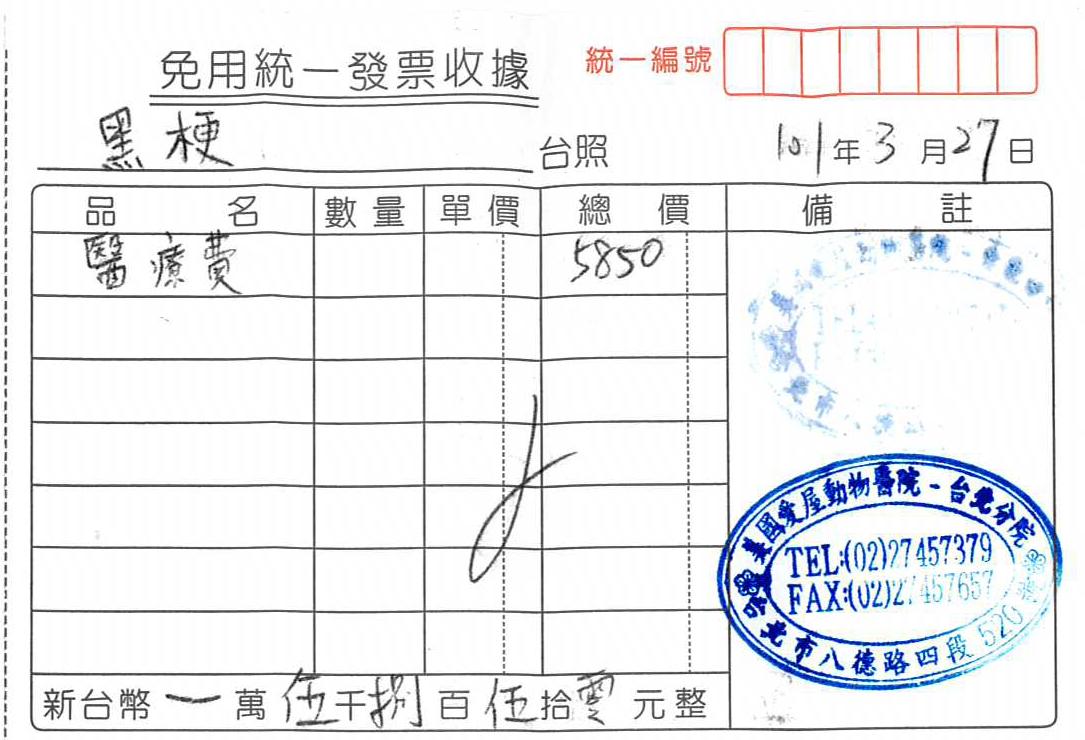 免用統一發票收據
統一編號
黑梗 台照 101年3月27日
品名 數量 單價 總價 備註
醫療費 5850
美國愛屋動物醫院-台北分院
TEL:(02)27457379
FAX:(02)27457657
台北市八德路四段520號
新台幣 一萬伍千捌百伍拾零元整